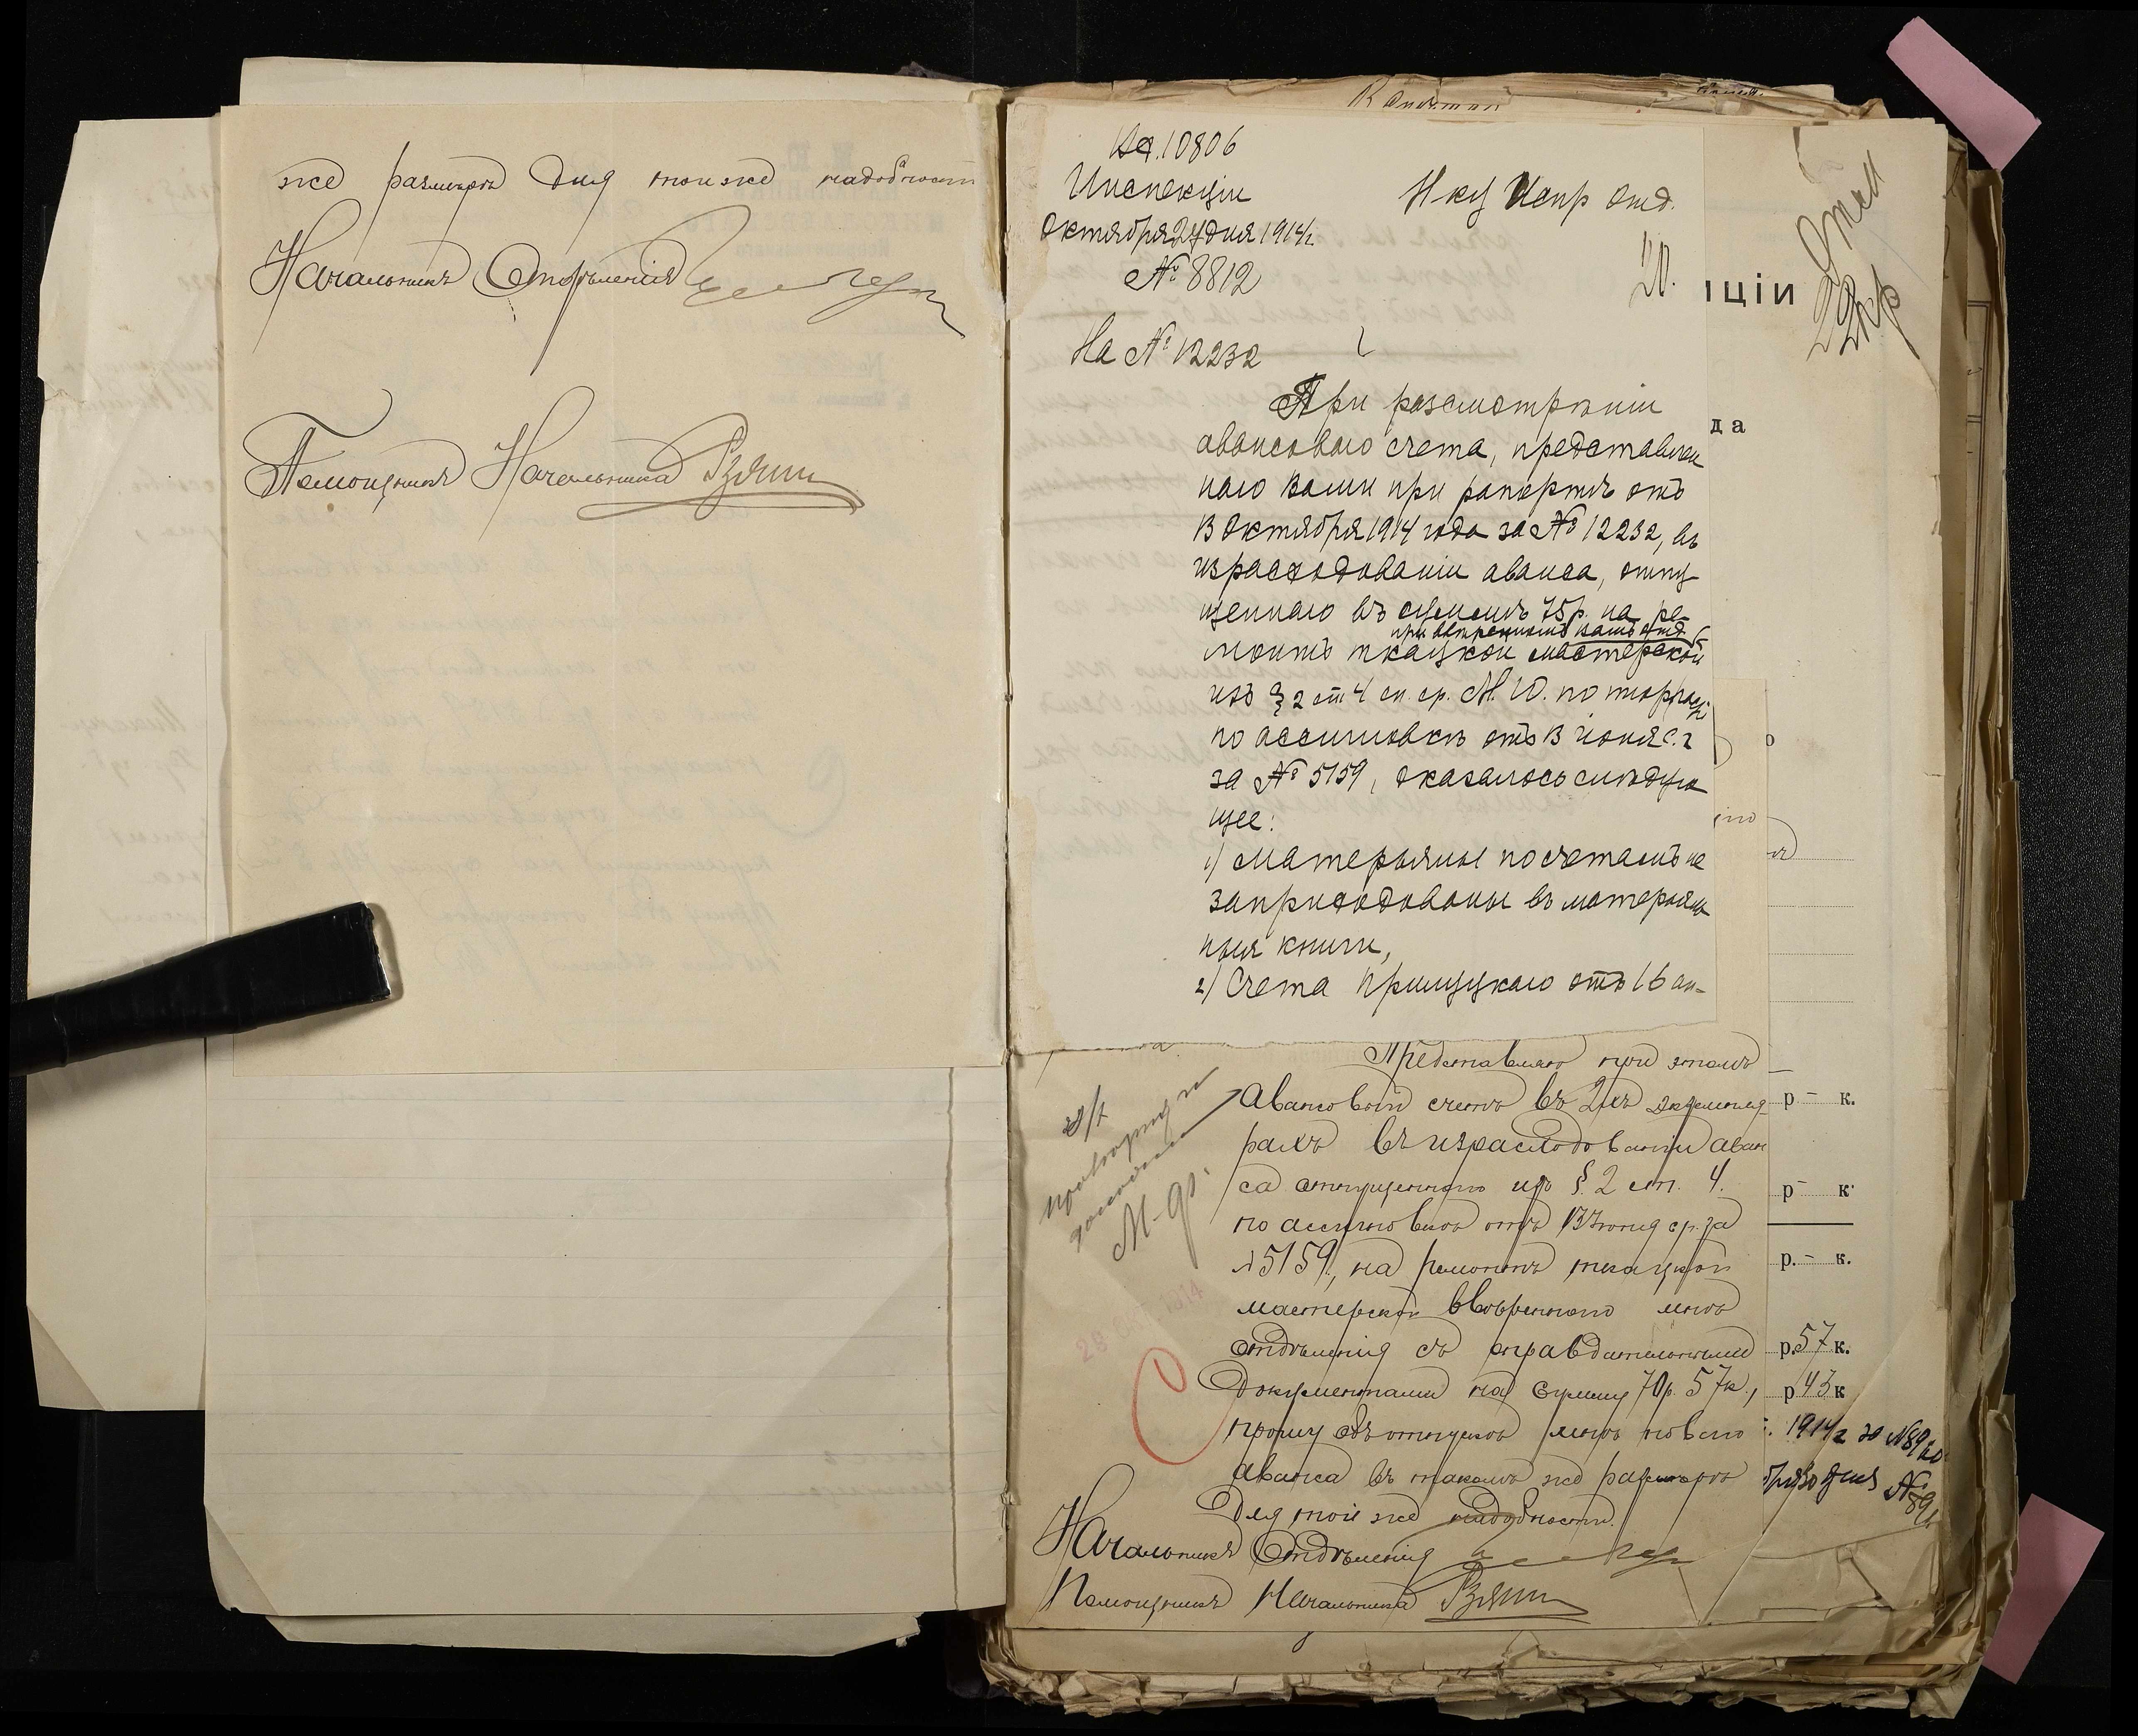 же размѣрѣ для той же надобности
Начальникъ Отдѣленія
Помощникъ Начальника
Вх. 10806
Инспекціи
Октября 27 дня 1914 г.
№ 8812
На № 12232
Нку Испр отд.
20.
При разсмотрѣніи
авансоваго счета, представлен
наго Вами при рапортѣ отъ
13 Октября 1914 года за № 12232, въ
израсходованіи аванса, отпу
щеннаго въ суммѣ 75 р. на ре-
при ввѣренномъ Вамъ отд.
монтъ ткацкой мастерской
изъ § 2 ст 4 см. ср. М. Ю. по тюрьм.
по ассигновкѣ отъ 13 іюня с. г
за № 5159, оказалось слѣдую
щее:
1) Матерьялы по счетамъ не
заприходованы въ матерьяль
ныя книги,
2) Счета Пришуцкаго отъ 16 ап-
ціи
да
Представляю при этомъ
авансовый счетъ въ 2хъ экземпля
рахъ въ израсходованіи аван
са отпущеннаго изъ § 2 ст. 4.
по ассигновкѣ отъ 13 Іюня с. г. за
№ 5159, на ремонтъ ткацкой
мастерской ввѣреннаго мнѣ
отдѣленія съ оправдательными
документами на сумму 70 р. 57 к.,
прошу объ отпускѣ мнѣ новаго
аванса въ такомъ же размѣрѣ
для той же надобности.
Начальникъ Отдѣленія
Помощникъ Начальника
28 1914
р – к.
р – к.
р. – к.
р. 57 к.
р 43 к
1914 г за № 89
бря 30 дня №
89